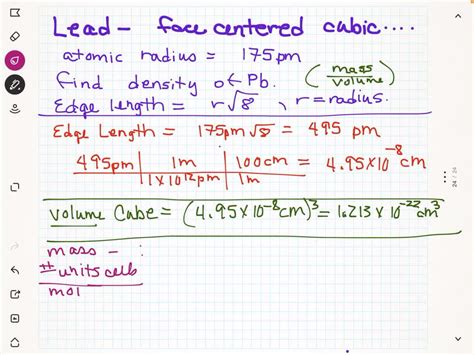 Lead - face centered cubic....
atomic radius = 175pm
find density of Pb. (mass/volume)
Edge length = r√8, r=radius.
Edge Length = 175pm √8 = 495 pm
495pm | 1m | 100cm = 4.95x10⁻⁸ cm
1x10¹²pm | 1m
Volume Cube = (4.95x10⁻⁸cm)³ = 1.213x10⁻²² cm³
mass - :
# units cells
mol
24 / 24